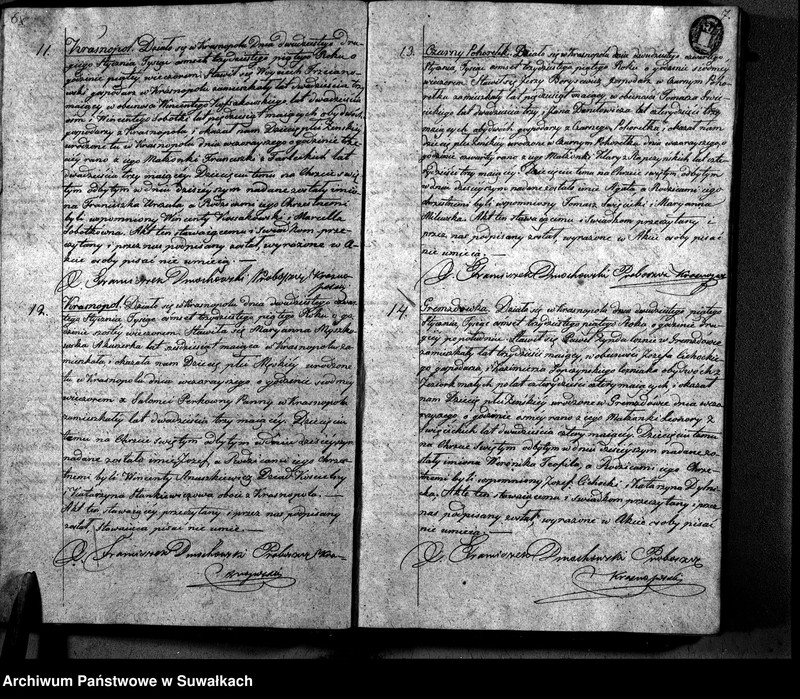 68
11. Krasnopol. Działo się w Krasnopolu dnia dwudziestego dru-
giego Stycznia Tysiąc ośmset trzydziestego piątego Roku o
godzinie piątej wieczorem. Stawił się Woyciech
gospodarz w Krasnopolu zamieszkały lat dwadzieścia trzy
mający w obecności Wincentego lat dwadzieścia
ośm i Wincentego Sobotki lat pięćdziesiąt mających obydwóch
gospodarzy z Krasnopola i okazał nam Dziecię płci Żeńskiej
urodzone tu w Krasnopolu dnia wczorayszego o godzinie trze-
ciej rano z jego Małżonki Franciszki z Pawłowskich lat
dwadzieścia trzy mającej. Dziecięciu temu na Chrzcie świę-
tym odbytym w dniu dzisieyszym nadane zostały imio-
na Franciszka Urszula a Rodzicami jego Chrzestnemi
byli wspomniony Wincenty Kossakowski i Marcella
Sobotkowna. Akt ten stawającemu i Świadkom prze-
czytany i przez nas podpisany został, wyrażone w A-
kcie osoby pisać nie umieją. —
X. Franciszek Dmochowski Proboszcz Krasno-
polski
12. Krasnopol. Działo się w Krasnopolu dnia dwudziestego
tego Stycznia Tysiąc ośmset trzydziestego piątego Roku o go-
dzinie szóstej wieczorem. Stawiła się Maryanna
Akuszerka lat mająca w Krasnopolu za-
mieszkała, i okazała nam Dziecię płci Męskiej urodzone
tu w Krasnopolu dnia wczorayszego o godzinie siódmej
wieczorem z Salomei Panny w Krasnopolu
zamieszkałej lat dwadzieścia trzy mającej. Dziecięciu
temu na Chrzcie Świętym odbytym w Dniu dzisieyszym
nadane zostało imie Józef, a Rodzicami jego Chrze-
stnemi byli Wincenty Anuszkiewicz Dziad Kościelny
i Katarzyna Stankiewiczowa oboie z Krasnopola. —
Akt ten stawającej przeczytany i przez nas podpisany
został, Stawająca pisać nie umie. —
X. Franciszek Dmochowski Proboszcz Kra-
snopolski
7.
13. Czarny Pokorelk. Działo się w Krasnopolu dnia dwudziestego czwartego
Stycznia, Tysiąc ośmset trzydziestego piątego Roku o godzinie siódmej
wieczorem. Stawił się Jerzy Borysewicz, gospodarz w Czarnym Po-
korelku zamieszkały lat pięćdziesiąt mający, w obecności Tomasza Świę-
cickiego lat dwadzieścia trzy i Jana Danilewicza lat czterdzieści trzy
mających obydwóch gospodarzy z Czarnego Pokorelka, i okazał nam
dziecię płci Żeńskiej urodzone w Czarnym Pokorelku dnia wczorayszego, o
godzinie czwartej rano z jego Małżonki Klary z lat czter-
dzieści trzy mającej. Dziecięciu temu na Chrzcie świętym odbytym
w dniu dzisieyszym nadane zostało imie Agata, a Rodzicami jego
chrzestnemi byli wspomniony Tomasz Święcicki i Maryanna
Milewska. Akt ten stawającemu i Świadkom przeczytany i
przez nas podpisany został, wyrażone w Akcie osoby pisać
nie umieją. —
X. Franciszek Dmochowski Proboszcz Krasnopolski
14. Gremzdówka. Działo się w Krasnopolu dnia dwudziestego piątego
Stycznia, Tysiąc ośmset trzydziestego piątego Roku o godzinie dru-
giej po południu. Stawił się Paweł w Gremzdówce
zamieszkały lat trzydzieści mający, w obecności Józefa Cichockie-
go gospodarza, i Kazimierza obydwóch z
Jeziorek małych po lat czterdzieści cztery mających i okazał
nam Dziecię płci Żeńskiej urodzone w Gremzdówce dnia wczo-
rayszego o godzinie ósmej rano z jego Małżonki Leonory z
Święcickich lat dwadzieścia cztery mającej. Dziecięciu temu
na Chrzcie Świętym odbytym w dniu dzisieyszym nadane zo-
stały imiona Weronika Teofila, a Rodzicami jego Chrze-
stnemi byli wspomniony Józef Cichocki, i Katarzyna
Akt ten stawającemu i świadkom przeczytany i przez
nas podpisany został, wyrażone w Akcie osoby pisać
nie umieją. —
X. Franciszek Dmochowski Proboszcz
Krasnopolski
Archiwum Państwowe w Suwałkach